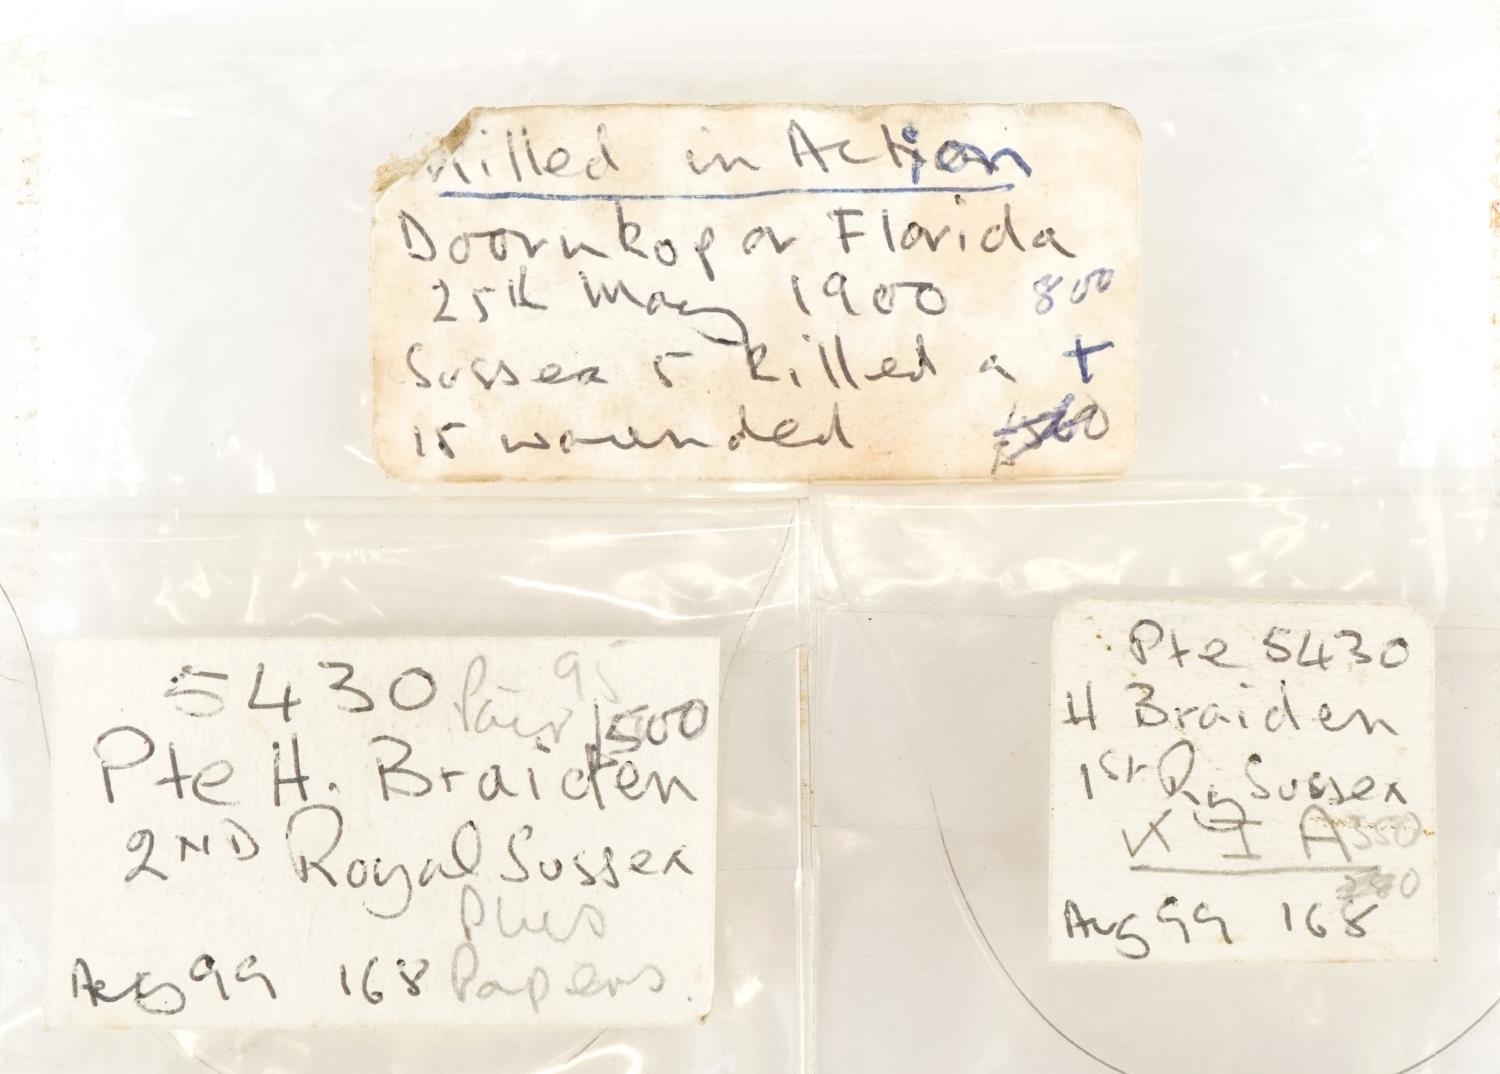 Killed in Action
Doornkop or Florida
25th May 1900 800
Sussex 5 killed a +
15 wounded
5430 Pair 95
1500
Pte H. Braiden
2ND Royal Sussex
Plus
Aug 99 168 Papers.
Pte 5430
H Braiden
1st Ry Sussex
K I A 550
Aug 99 168